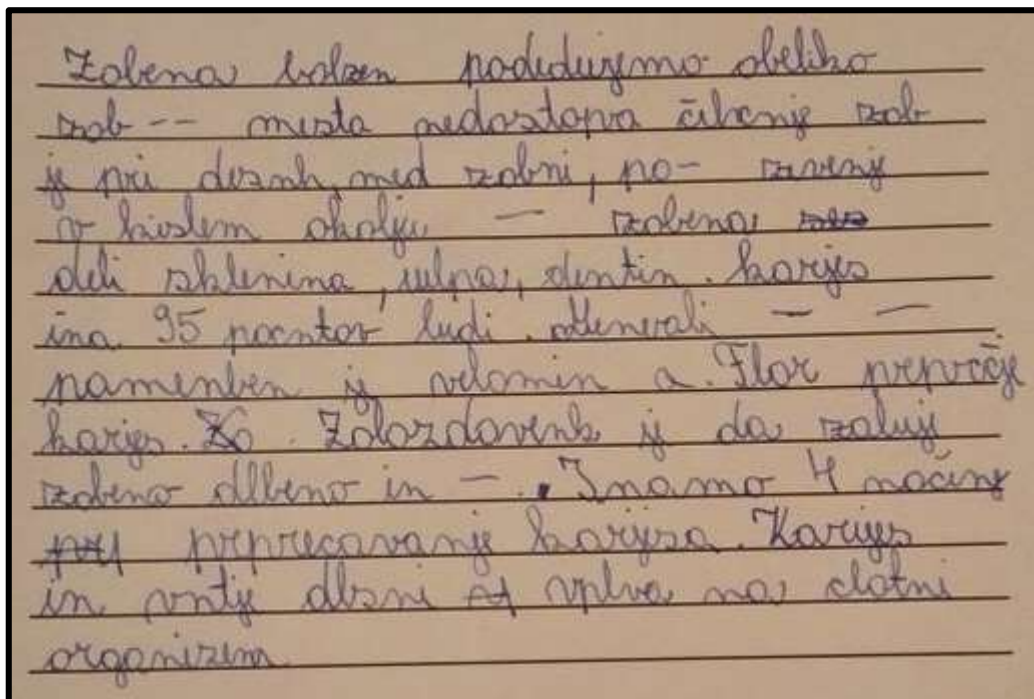 Zobena bolzen podedujemo obeliko
zob -- mesta nedostopva čihenje zob
je pri dlesnh, med zobni, po- zrvenje
v kislem okolju — zobena
deli sklenina, pulpa, dentin. karijes
ima 95 pocntov ludi. Menerali — —
namenben je velomin a. Flor prprčje
karijes. Zolozdovenk je da zaluje
zobeno dlbeno in —. Imamo 4 načine
prprečavanje karijesa. Karijes
in vntje dlsni vplva na clotni
organizem